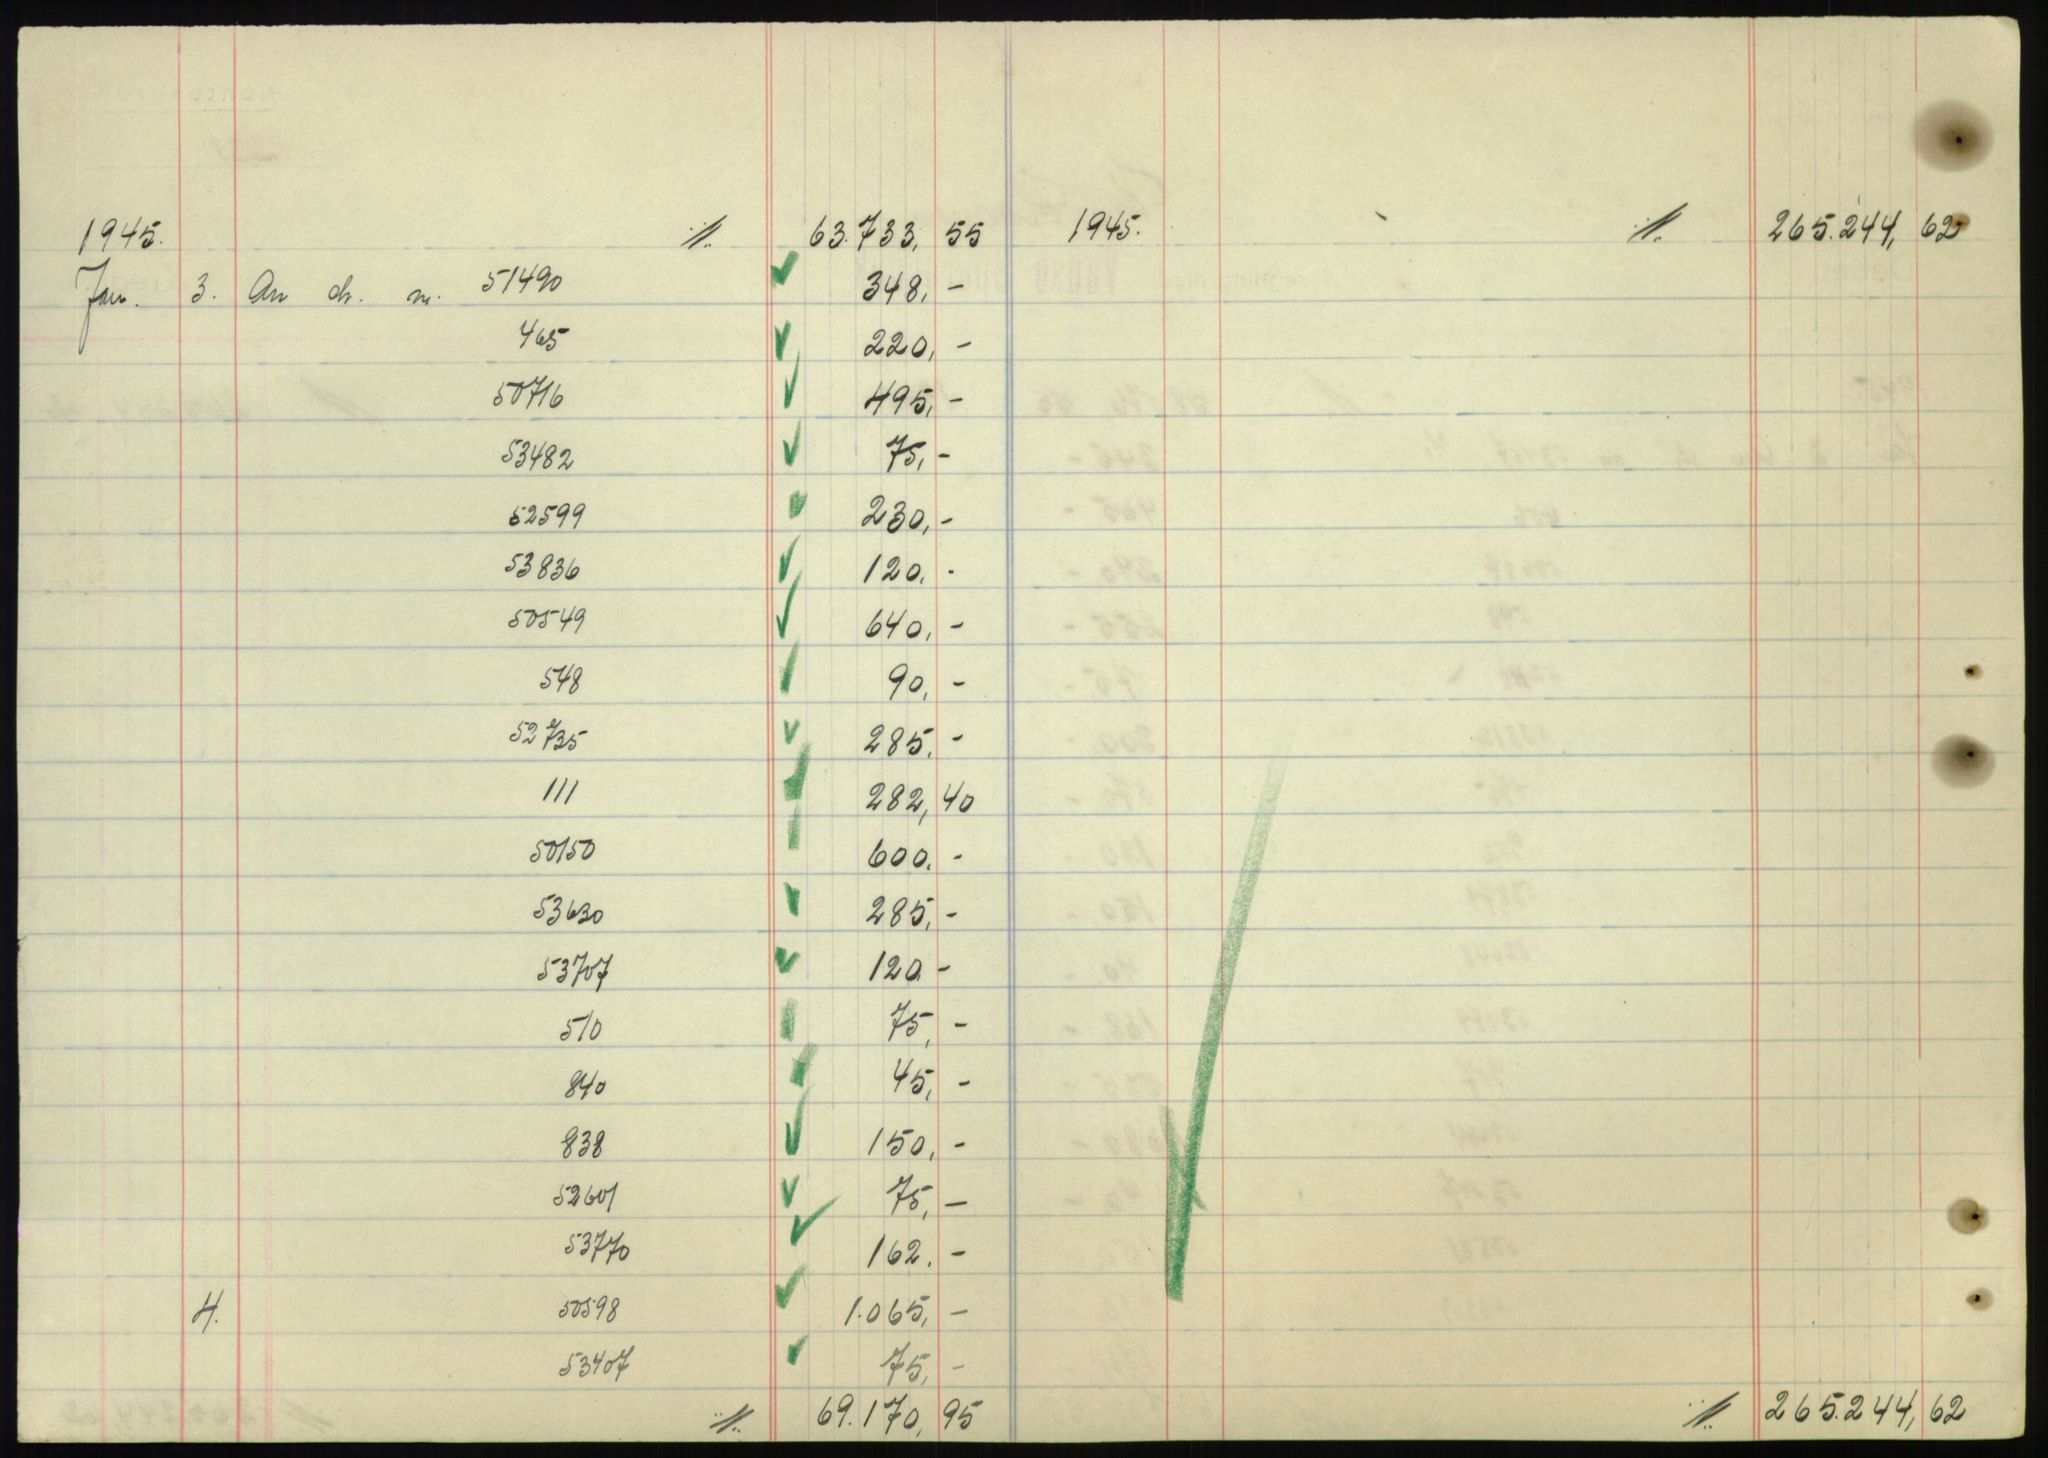 1945. ·/. 63.733, 55
Jan. 3. An ch. nr. 51490 348, -
465 220, -
50716 495, -
53482 75, -
52599 230, -
53836 120. -
50549 640, -
548 90, -
52735 285. -
111 282, 40
50150 600. -
53630 285, -
53707 120 -
510 75, -
840 45, -
838 150, -
52601 75, -
53770 162. -
4. 50598 1.065, -
53407 75, -
·/. 69.170, 95
1945. ·/. 265.244, 62
·/. 265.244, 62